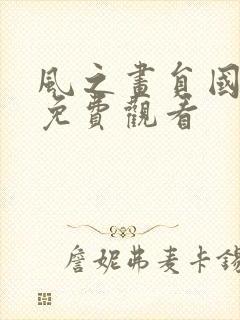 風之畫員國
免費觀看
詹妮弗麦卡錫